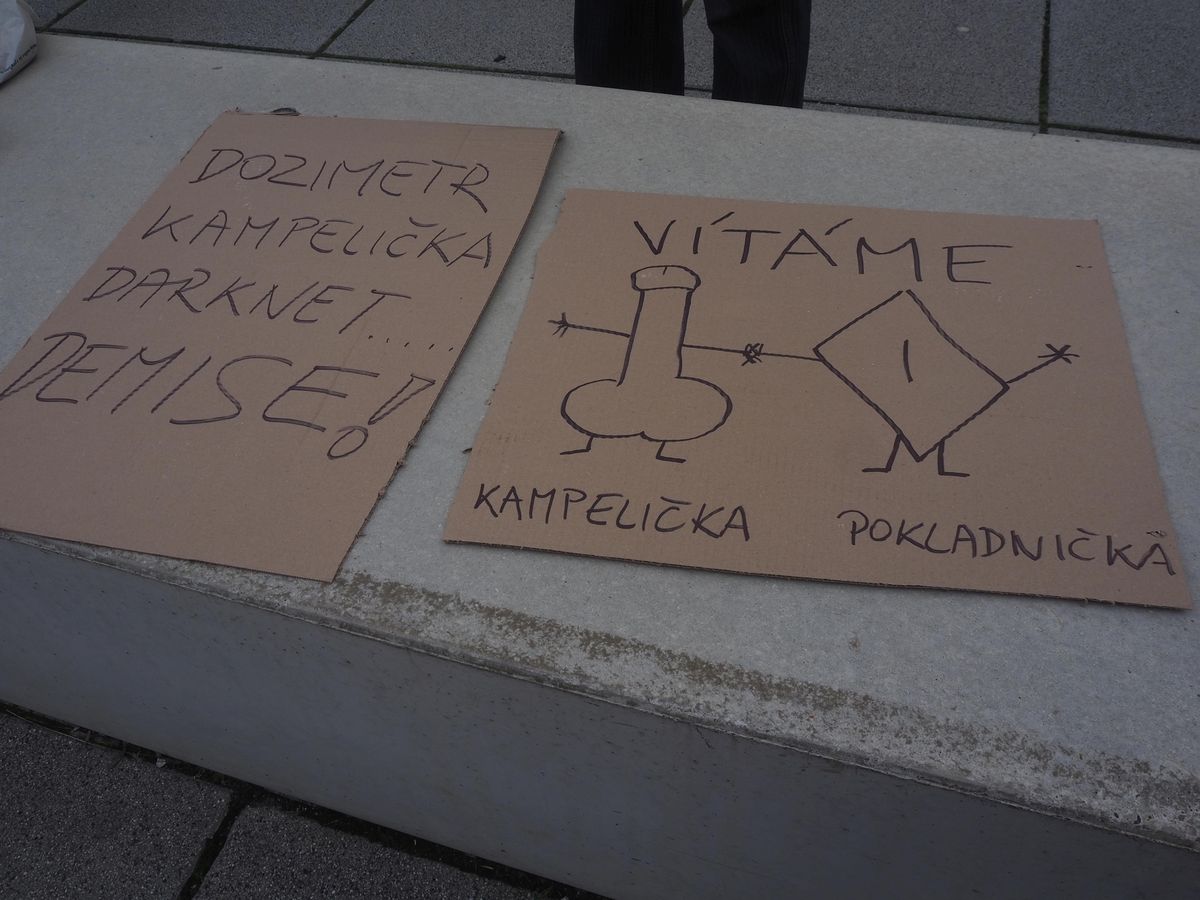 DOZIMETR
KAMPELIČKA
DARKNET.....
DEMISE!
VÍTÁME
KAMPELIČKA
POKLADNIČKA